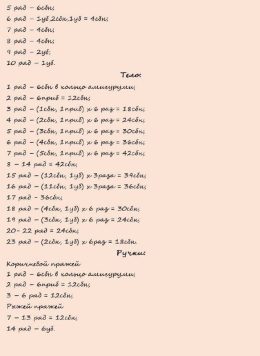 5 ряд – 6сбн;
6 ряд – 1уб,2сбн,1уб = 4сбн;
7 ряд – 4сбн;
8 ряд – 4сбн;
9 ряд – 2уб;
10 ряд – 1уб.
Тело:
1 ряд – 6сбн в кольцо амигуруми;
2 ряд – 6приб = 12сбн;
3 ряд – (1сбн, 1приб) х 6 раз = 18сбн;
4 ряд – (2сбн, 1приб) х 6 раз = 24сбн;
5 ряд – (3сбн, 1приб) х 6 раз = 30сбн;
6 ряд – (4сбн, 1приб) х 6 раз = 36сбн;
7 ряд – (5сбн, 1приб) х 6 раз = 42сбн;
8 – 14 ряд = 42сбн;
15 ряд – (12сбн, 1уб) х 3раза = 39сбн;
16 ряд – (11сбн, 1уб) х 3раза = 36сбн;
17 ряд – 36сбн;
18 ряд – (4сбн, 1уб) х 6 раз = 30сбн;
19 ряд – (3сбн, 1уб) х 6 раз = 24сбн;
20- 22 ряд = 24сбн;
23 ряд – (2сбн, 1уб) х 6раз = 18сбн.
Ручки:
Коричневой пряжей
1 ряд – 6сбн в кольцо амигуруми;
2 ряд – 6приб = 12сбн;
3 – 6 ряд = 12сбн;
Рыжей пряжей
7 – 13 ряд = 12сбн;
14 ряд – 6уб.